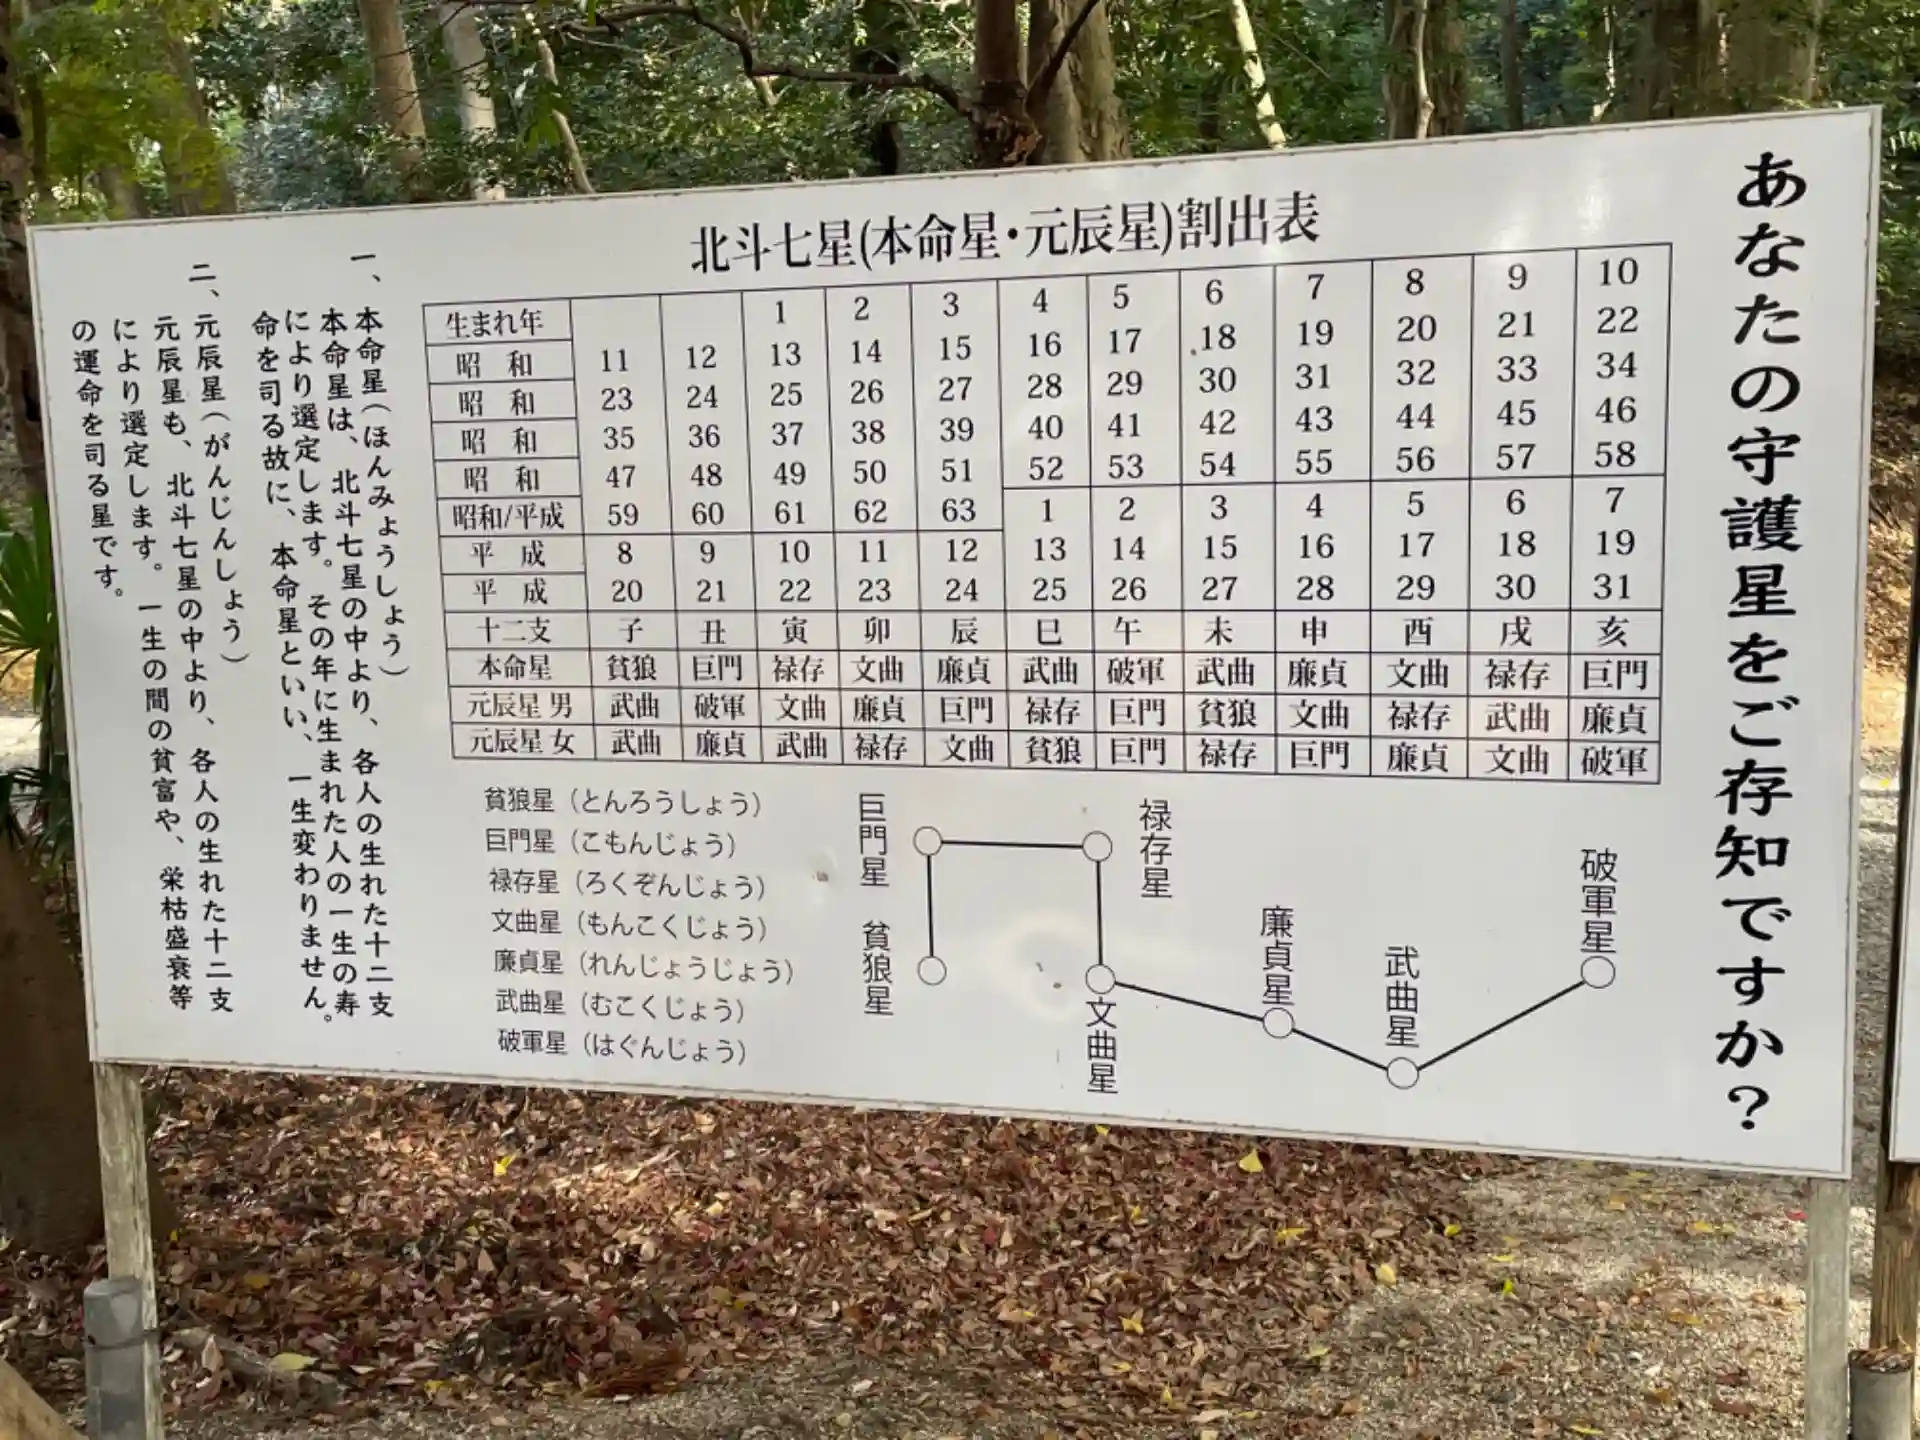 あなたの守護星をご存知ですか?
北斗七星(本命星・元辰星)割出表
生まれ年 1 2 3 4 5 6 7 8 9 10
昭和 11 12 13 14 15 16 17 18 19 20 21 22
昭和 23 24 25 26 27 28 29 30 31 32 33 34
昭和 35 36 37 38 39 40 41 42 43 44 45 46
昭和 47 48 49 50 51 52 53 54 55 56 57 58
昭和/平成 59 60 61 62 63 1 2 3 4 5 6 7
平成 8 9 10 11 12 13 14 15 16 17 18 19
平成 20 21 22 23 24 25 26 27 28 29 30 31
十二支 子 丑 寅 卯 辰 巳 午 未 申 酉 戌 亥
本命星 貧狼 巨門 禄存 文曲 廉貞 武曲 破軍 武曲 廉貞 文曲 禄存 巨門
元辰星 男 武曲 破軍 文曲 廉貞 巨門 禄存 巨門 貧狼 文曲 禄存 武曲 廉貞
元辰星 女 武曲 廉貞 武曲 禄存 文曲 貧狼 巨門 禄存 巨門 廉貞 文曲 破軍
一、本命星(ほんみょうしょう)
本命星は、北斗七星の中より、各人の生れた十二支
により選定します。その年に生まれた人の一生の寿
命を司る故に、本命星といい、一生変わりません。
二、元辰星(がんじんしょう)
元辰星も、北斗七星の中より、各人の生れた十二支
により選定します。一生の間の貧富や、栄枯盛衰等
の運命を司る星です。
貧狼星(とんろうしょう)
巨門星(こもんじょう)
禄存星(ろくぞんじょう)
文曲星(もんこくじょう)
廉貞星(れんじょうじょう)
武曲星(むこくじょう)
破軍星(はぐんじょう)
巨門星
貧狼星
禄存星
文曲星
廉貞星
武曲星
破軍星